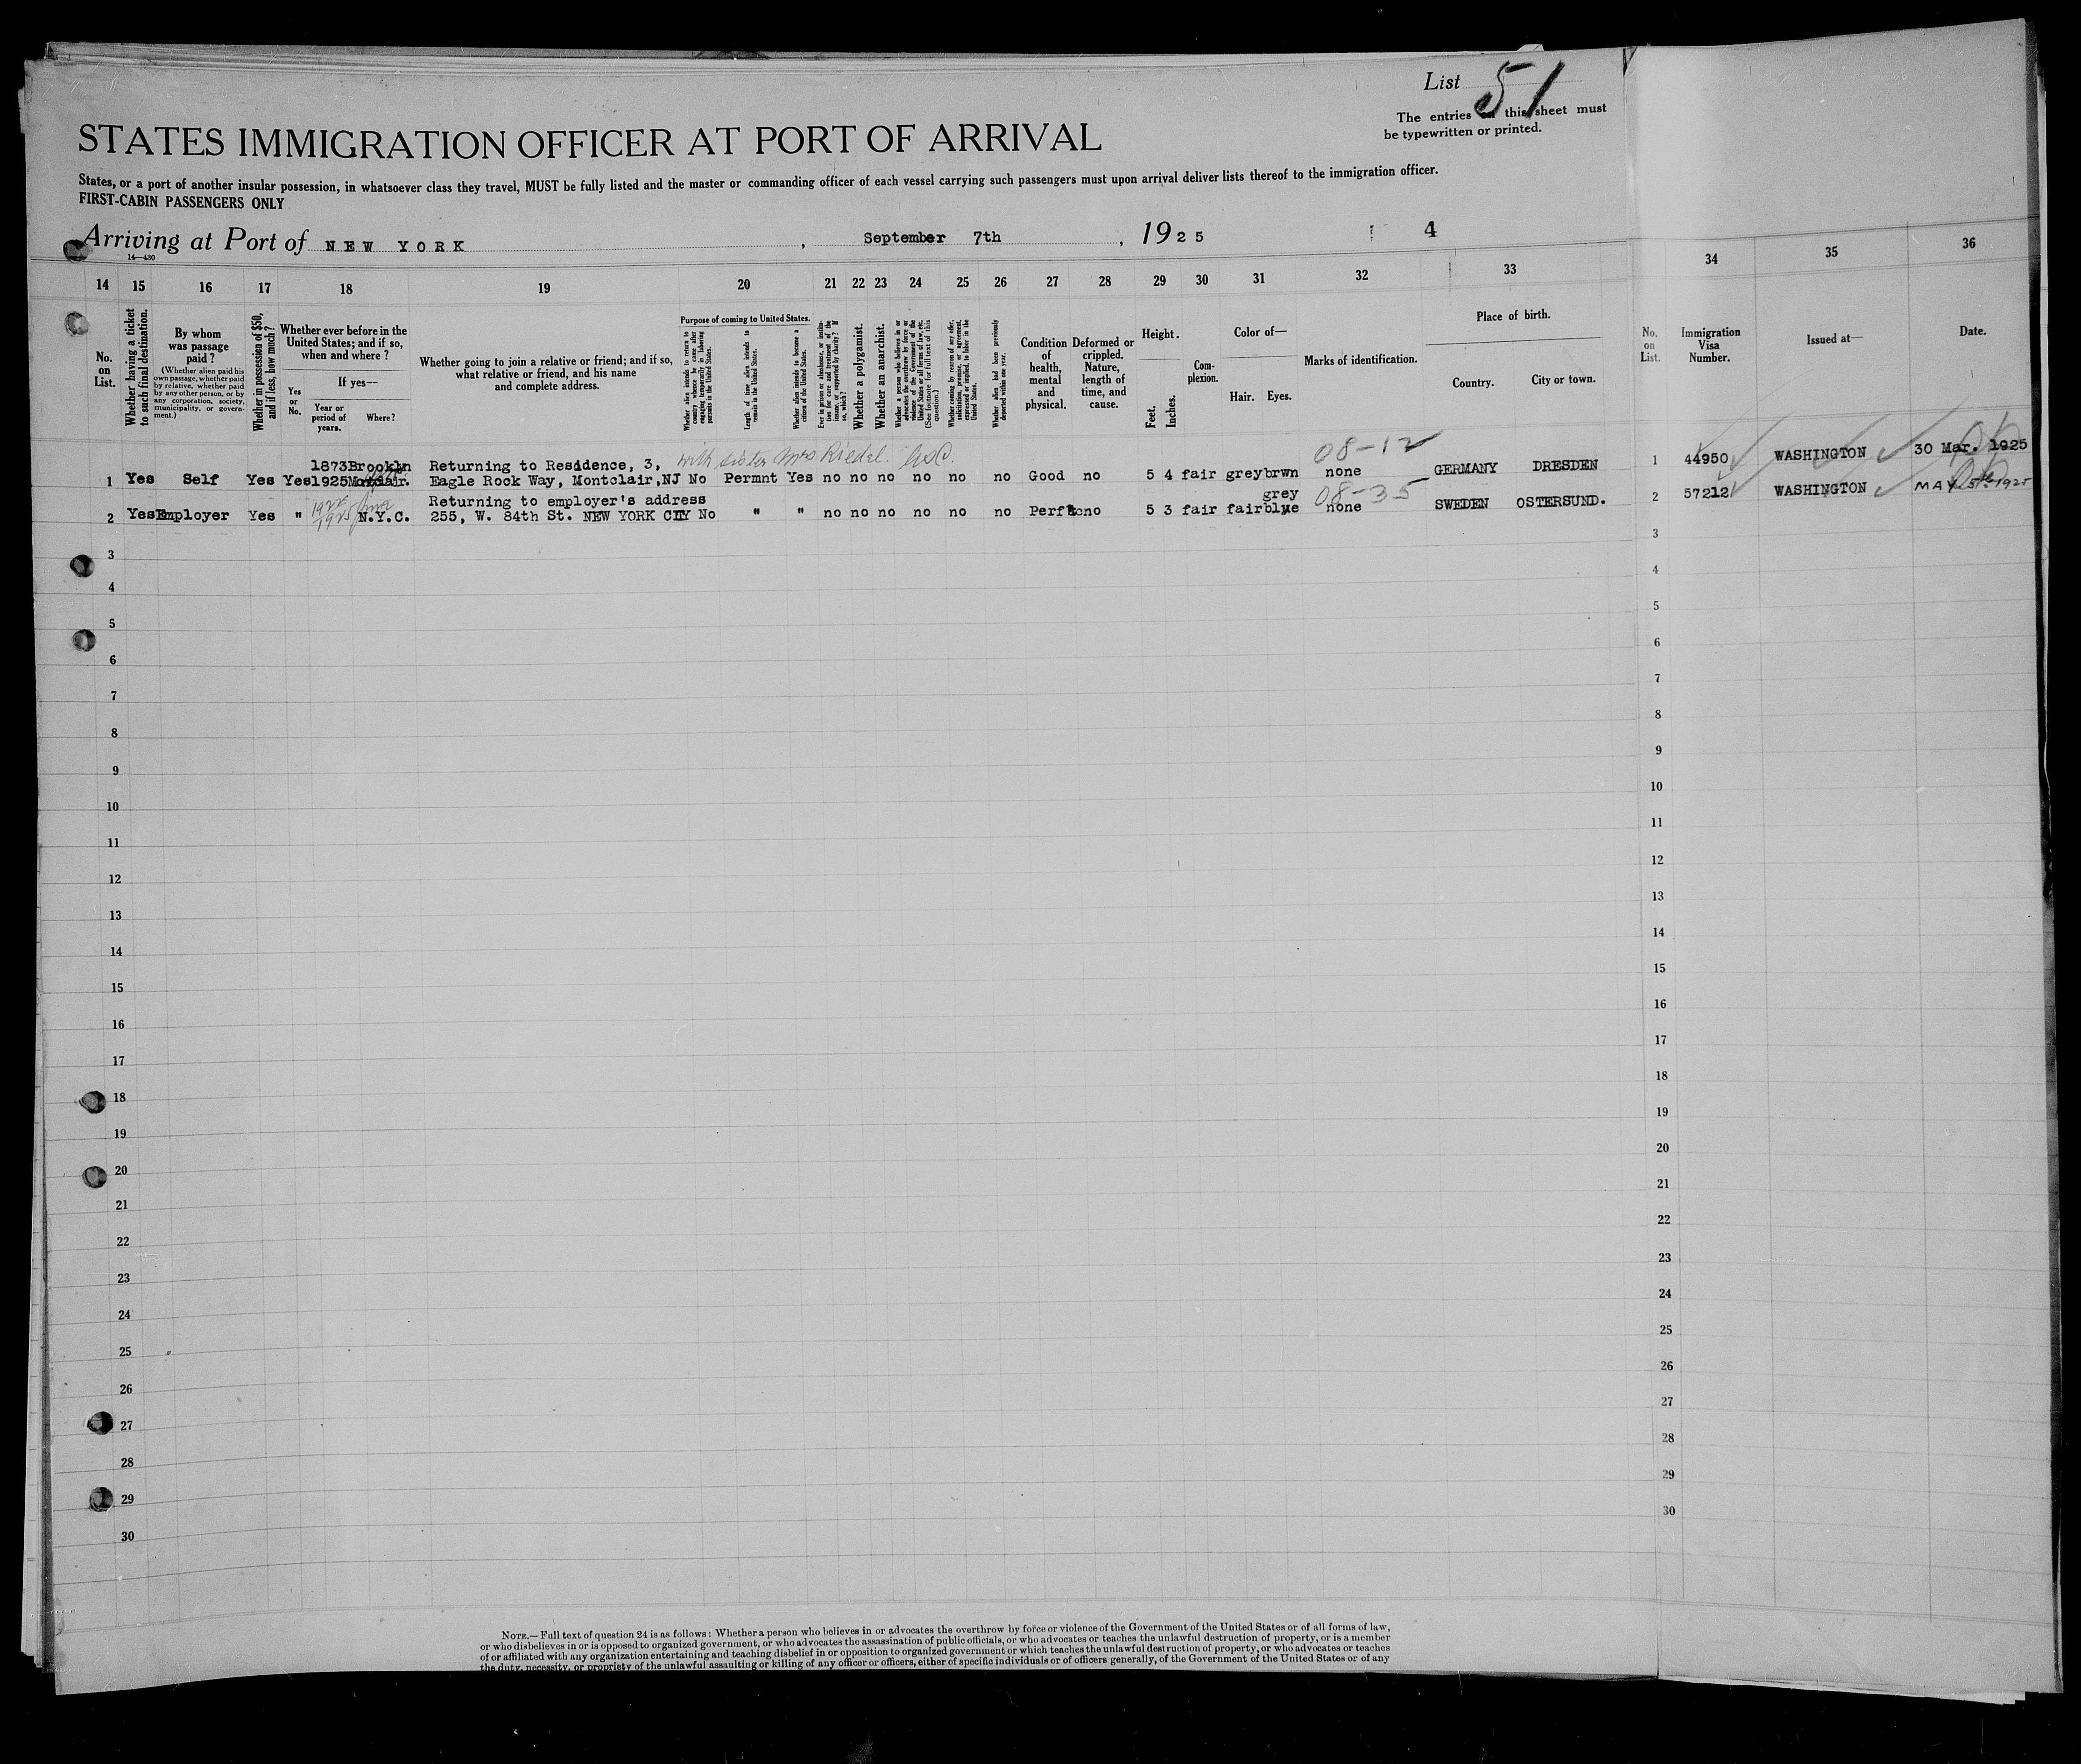 List 51
The entries on this sheet must
be typewritten or printed.
STATES IMMIGRATION OFFICER AT PORT OF ARRIVAL
States, or a port of another insular possession, in whatsoever class they travel, MUST be fully listed and the master or commanding officer of each vessel carrying such passengers must upon arrival deliver lists thereof to the immigration officer.
FIRST-CABIN PASSENGERS ONLY
Arriving at Port of NEW YORK , September 7th , 1925 4
14—430
14 15 16 17 18 19 20 21 22 23 24 25 26 27 28 29 30 31 32 33 34 35 36
No. on List.
Whether having a ticket to such final destination.
By whom was passage paid?
(Whether alien paid his own passage, whether paid by relative, whether paid by any other person, or by any corporation, society, municipality, or government.)
Whether in possession of $50, and if less, how much?
Whether ever before in the United States; and if so, when and where?
Yes or No.
If yes—
Year or period of years.
Where?
Whether going to join a relative or friend; and if so, what relative or friend, and his name and complete address.
Purpose of coming to United States.
Whether alien intends to return to country whence he came after engaging temporarily in laboring pursuits in the United States.
Length of time alien intends to remain in the United States.
Whether alien intends to become a citizen of the United States.
Ever in prison or almshouse, or institution for care and treatment of the insane, or supported by charity? If so, which?
Whether a polygamist.
Whether an anarchist.
Whether a person who believes in or advocates the overthrow by force or violence of the Government of the United States or all forms of law, etc. (See footnote for full text of this question.)
Whether coming by reason of any offer, solicitation, promise, or agreement, expressed or implied, to labor in the United States.
Whether alien had been previously deported within one year.
Condition of health, mental and physical.
Deformed or crippled. Nature, length of time, and cause.
Height.
Feet. Inches.
Complexion.
Color of—
Hair. Eyes.
Marks of identification.
Place of birth.
Country. City or town.
No. on List.
Immigration Visa Number.
Issued at—
Date.
with sister Mrs Riedel. 08-12
1873 Brookln Returning to Residence, 3,
1 Yes Self Yes Yes 1925 Eagle Rock Way, Montclair, NJ No Permnt Yes no no no no no no Good no 5 4 fair grey brwn none GERMANY DRESDEN 1 44950 WASHINGTON 30 Mar. 1925
Returning to employer's address grey 08-35
2 Yes Employer Yes " 1925 N.Y.C. 255, W. 84th St. NEW YORK CITY No " " no no no no no no Perfct no 5 3 fair fair blue none SWEDEN OSTERSUND. 2 57212 WASHINGTON MAY 5th 1925
3 3
4 4
5 5
6 6
7 7
8 8
9 9
10 10
11 11
12 12
13 13
14 14
15 15
16 16
17 17
18 18
19 19
20 20
21 21
22 22
23 23
24 24
25 25
26 26
27 27
28 28
29 29
30 30
NOTE.—Full text of question 24 is as follows: Whether a person who believes in or advocates the overthrow by force or violence of the Government of the United States or of all forms of law,
or who disbelieves in or is opposed to organized government, or who advocates the assassination of public officials, or who advocates or teaches the unlawful destruction of property, or is a member
of or affiliated with any organization entertaining and teaching disbelief in or opposition to organized government or which teaches the unlawful destruction of property, or who advocates or teaches
the duty, necessity, or propriety of the unlawful assaulting or killing of any officer or officers, either of specific individuals or of officers generally, of the Government of the United States or of any